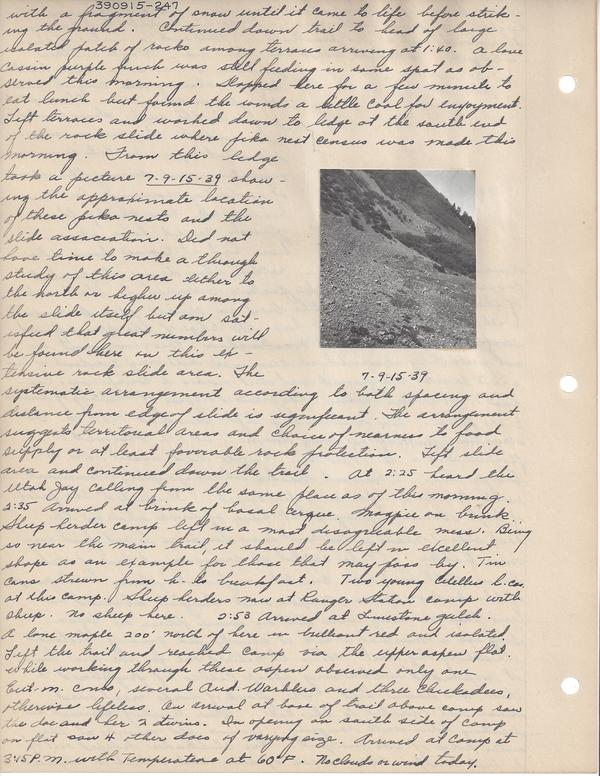 390915-247
with a fragment of snow until it came to life before strik-
ing the ground. Continued down trail to head of large
isolated patch of rocks among terraces arriving at 1:40. A lone
Cassin purple finch was still feeding in same spot as ob-
served this morning. Stopped here for a few minutes to
eat lunch but found the winds a little cool for enjoyment.
Left terraces and worked down to ledge at the south end
of the rock slide where pika nest census was made this
morning. From this ledge
took a picture 7-9-15-39 show-
ing the approximate location
of these pika nests and the
slide association. Did not
have time to make a through
study of this area either to
the north or higher up among
the slide itself but am sat-
isfied that great numbers will
be found here in this ex-
tensive rock slide area. The
7-9-15-39
systematic arrangement according to both spacing and
distance from edge of slide is significant. The arrangement
suggests territorial areas and choice of nearness to food
supply or at least favorable rock protection. Left slide
area and continued down the trail. At 2:25 heard the
Utah Jay calling from the same place as of this morning.
2:35 Arrived at brink of basal cirque. Magpie on brink.
Sheep herder camp left in a most disagreeable mess. Being
so near the main trail, it should be left in excellent
shape as an example for those that may pass by. Tin
cans strewn from h. to breakfast. Two young Citellus
at this camp. Sheep herders now at Ranger Station camp with
sheep. No sheep here. 2:53 Arrived at Limestone gulch.
A lone maple 200' north of here in brilliant red and isolated.
Left the trail and reached camp via the upper aspen flat.
While working through these aspen observed only one
Eut. m. cons, several Aud. Warblers and three Chickadees,
otherwise lifeless. On arrival at base of trail above camp saw
the doe and her 2 twins. In opening on south side of camp
on flat saw 4 other does of varying size. Arrived at Camp at
3:45 P.M. with Temperature at 60° F. No clouds or wind today.